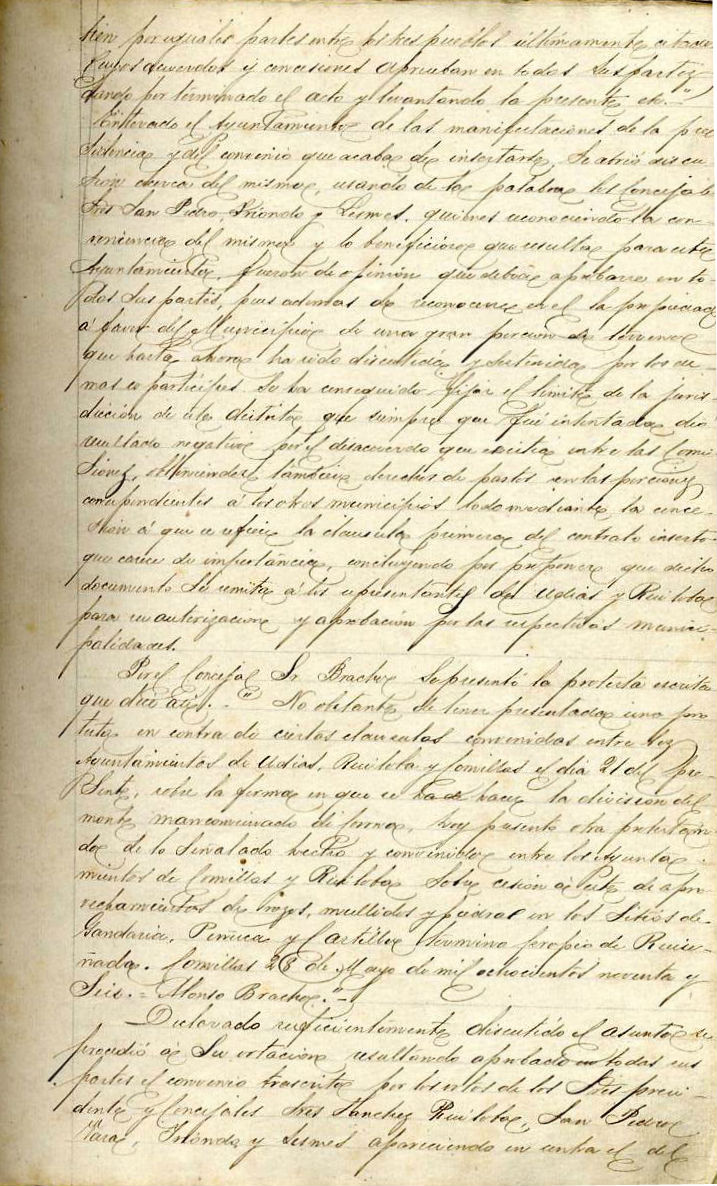 bien por iguales partes entre los tres pueblos últimamente citados
cuyos acuerdos y concesiones aprueban en todas sus partes,
dando por terminado el acto y levantando la presente etc."
Enterado el Ayuntamiento de las manifestaciones de la pre
sidencia y del convenio que acaba de insertarse, se abrió discu
sión acerca del mismo, usando de la palabra los Concejales
Sres San Pedro, Yriondo y Lesmes, quienes reconociendo la con-
veniencia del mismo y lo beneficioso que resulta para este
Ayuntamiento, fueron de opinión que debía aprobarse en to-
das sus partes, pues ademas de reconocerse en él la propiedad
á favor del Municipio de una gran porcion de terreno
que hasta ahora ha sido discutida y sostenida por los de
mas co partícipes se ha conseguido fijar el limite de la juris-
dicción de este distrito que siempre que fué intentada dió
resultado negativo por el desacuerdo que existia entre las Comi-
siones, obteniendo tambien derechos de pastos en las porciones
correspondientes á los otros municipios todo mediante la conce-
sion á que se refiere la clausula primera del contrato inserto
que carece de importancia, concluyendo por proponer que dicho
documento se remita á los representantes de Udias y Ruiloba
para su autorizacion y aprobación por las respectivas munici-
palidades.
Por el Concejal Sr. Bracho se presentó la protesta escrita
que dice así: " No obstante de tener presentada una pro
testa en contra de ciertas clausulas convenidas entre los
Ayuntamientos de Udias, Ruiloba y Comillas el dia 21 del pre-
sente, sobre la forma en que se ha de hacer la division del
monte mancomunado de Corona, hoy presento otra protestan
do de lo señalado hecho y convenible entre los Ayunta
mientos de Comillas y Ruiloba sobre cesión á este de apro
vechamientos de rozos, mullidos y piedras en los sitios de
Gandaria, Peruca y Castillo término propio de Ruise-
ñada. Comillas 28 de Mayo de mil ochocientos noventa y
Seis. = Alonso Bracho."
Declarado suficientemente discutido el asunto se
procedió á su votación resultando aprobado en todas sus
partes el convenio trascrito por los votos de los Sres presi-
dente y Concejales Sres Sanchez Ruiloba, San Pedro
Vara, Yriondo y Lesmes apareciendo en contra el del